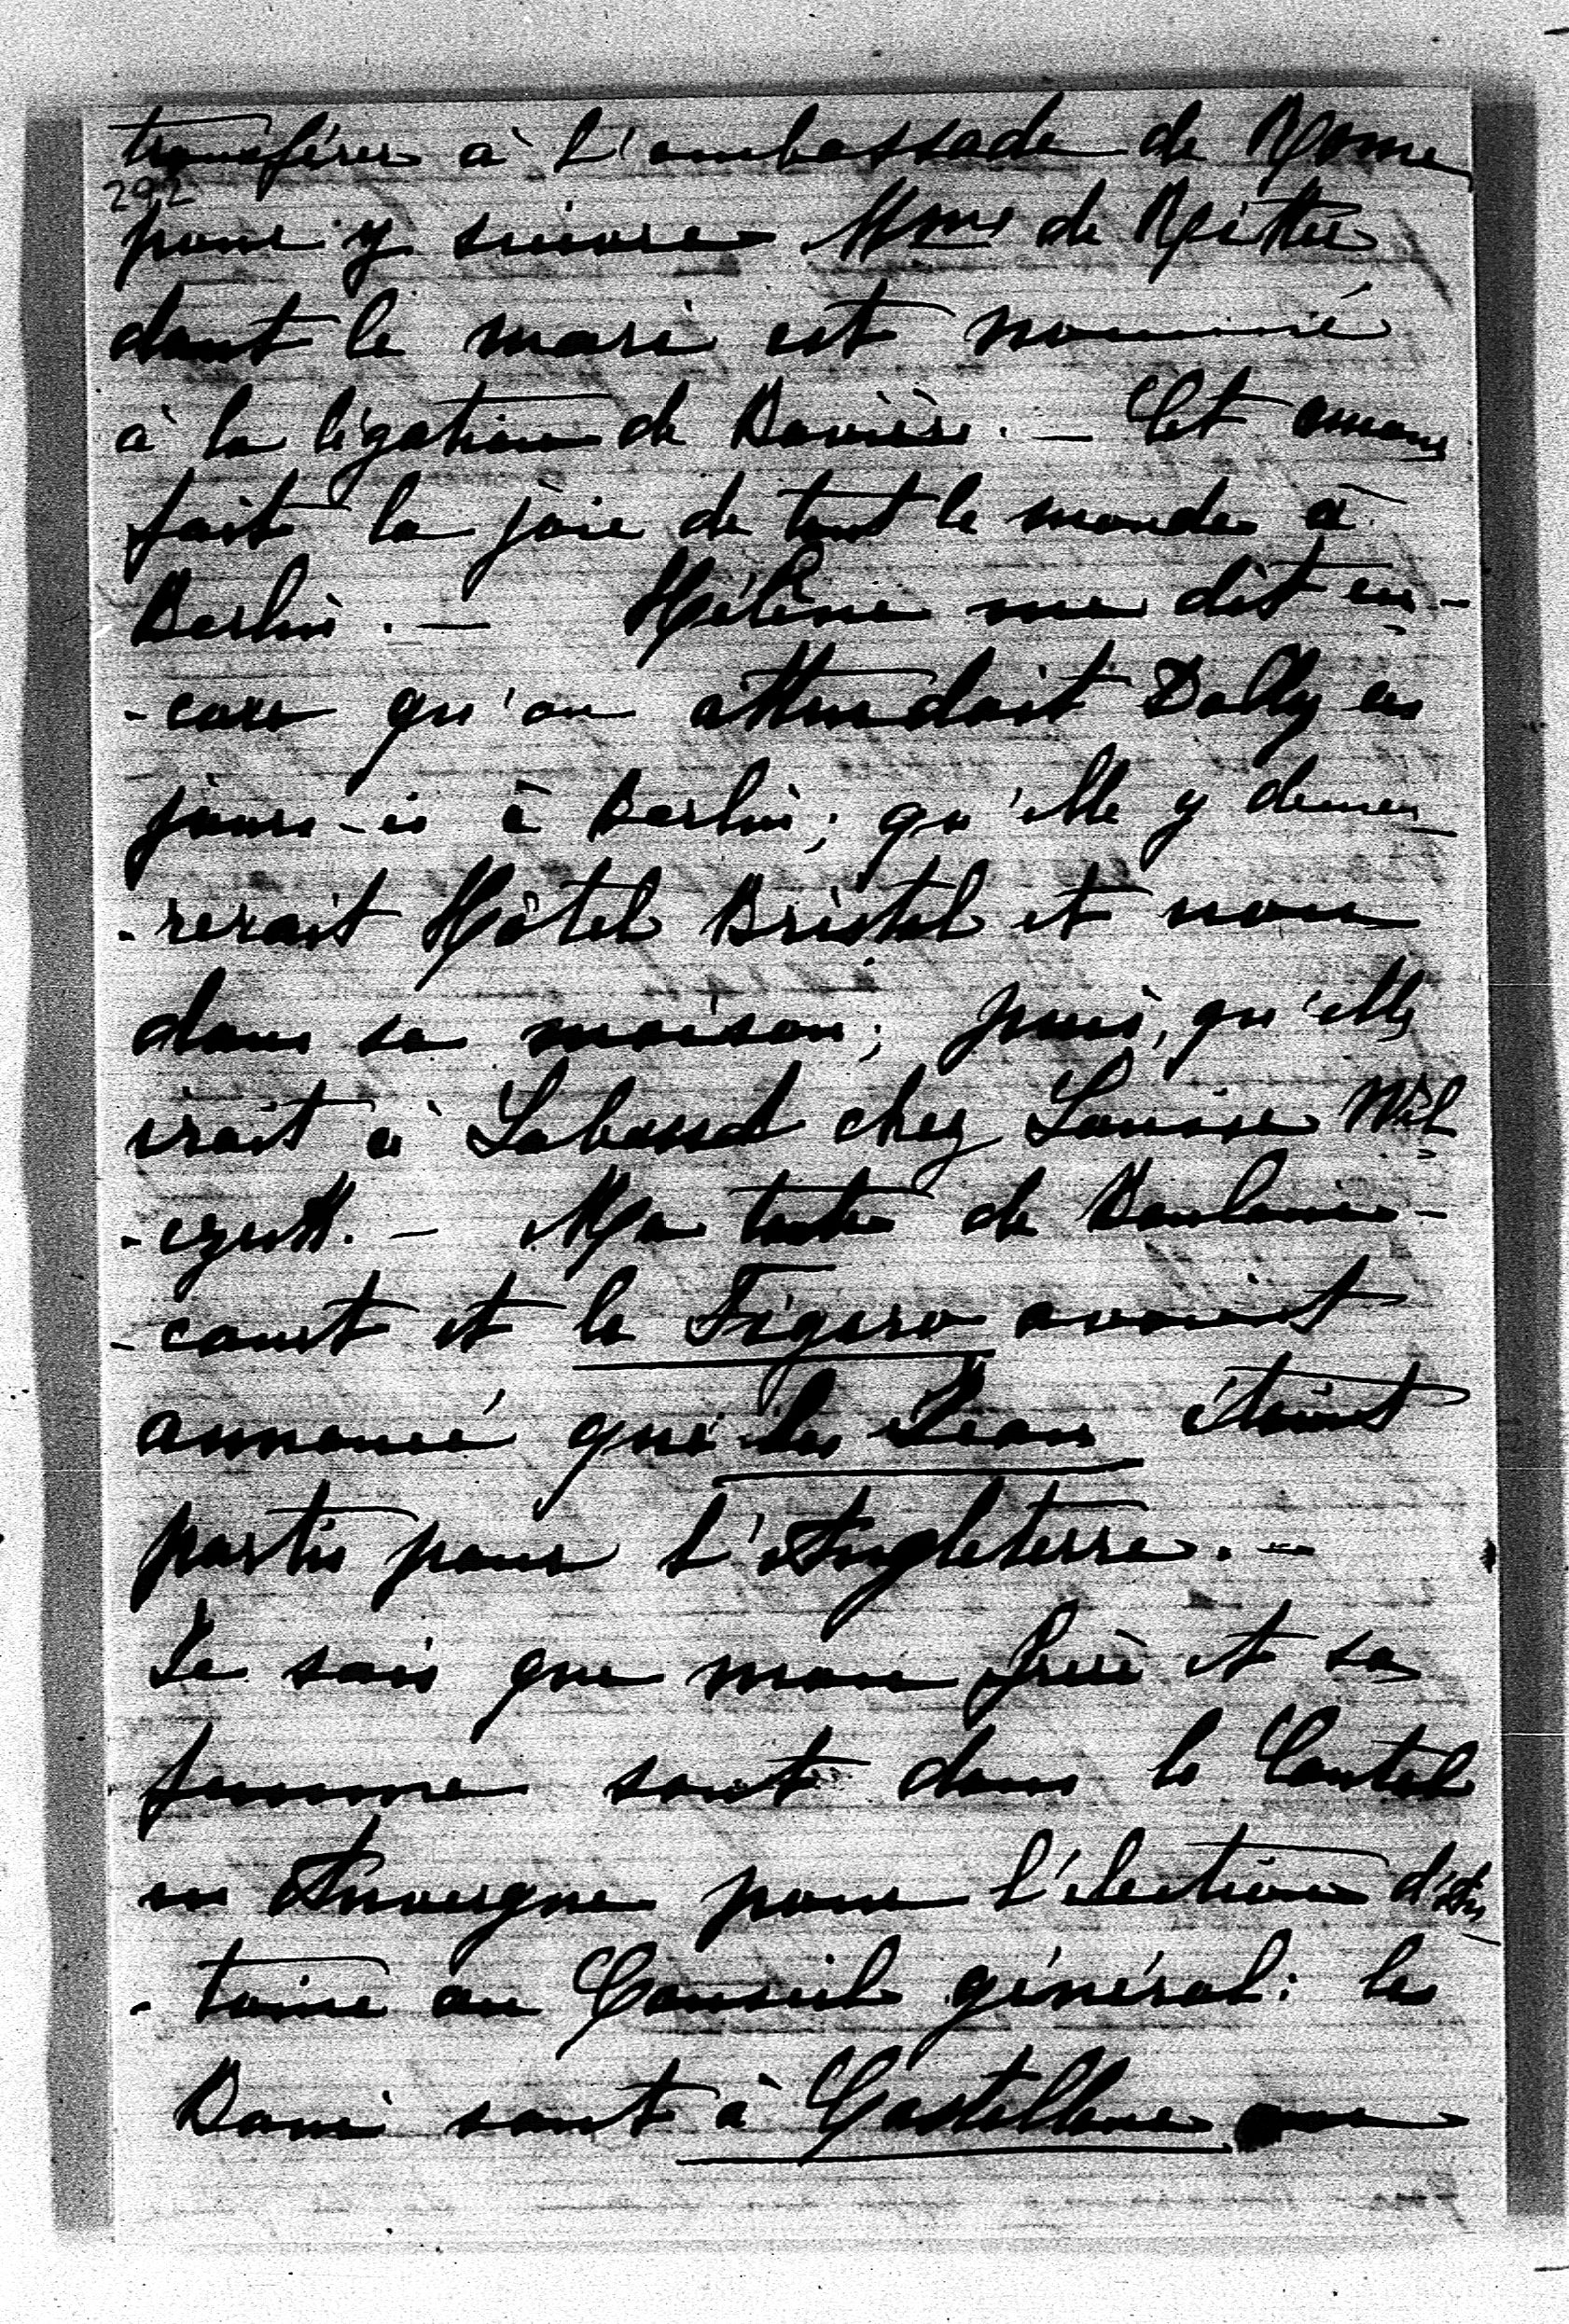 transférer à l'ambassade de Rome
292
pour y suivre Mme de Ritter
dont le mari est nommé
à la légation de Bavière. — Cet amour
fait la joie de tout le monde à
Berlin. — Hélène me dit en-
-core qu'on attendait Dolly ces
jours-ci à Berlin; qu'elle y demeu-
-rerait Hôtel Bristel et non
dans sa maison; puis, qu'elle
irait à Labassad chez Louise Wil
-czeck. — Ma tante de Baulain-
-court et le Figaro avaient
annoncé que les Jean étaient
partis pour l'Angleterre. —
Je sais que mon frère et sa
femme sont dans le Cantal
en Auvergne pour l'élection d'An-
-toine au Conseil général: les
Boni sont à Castellane